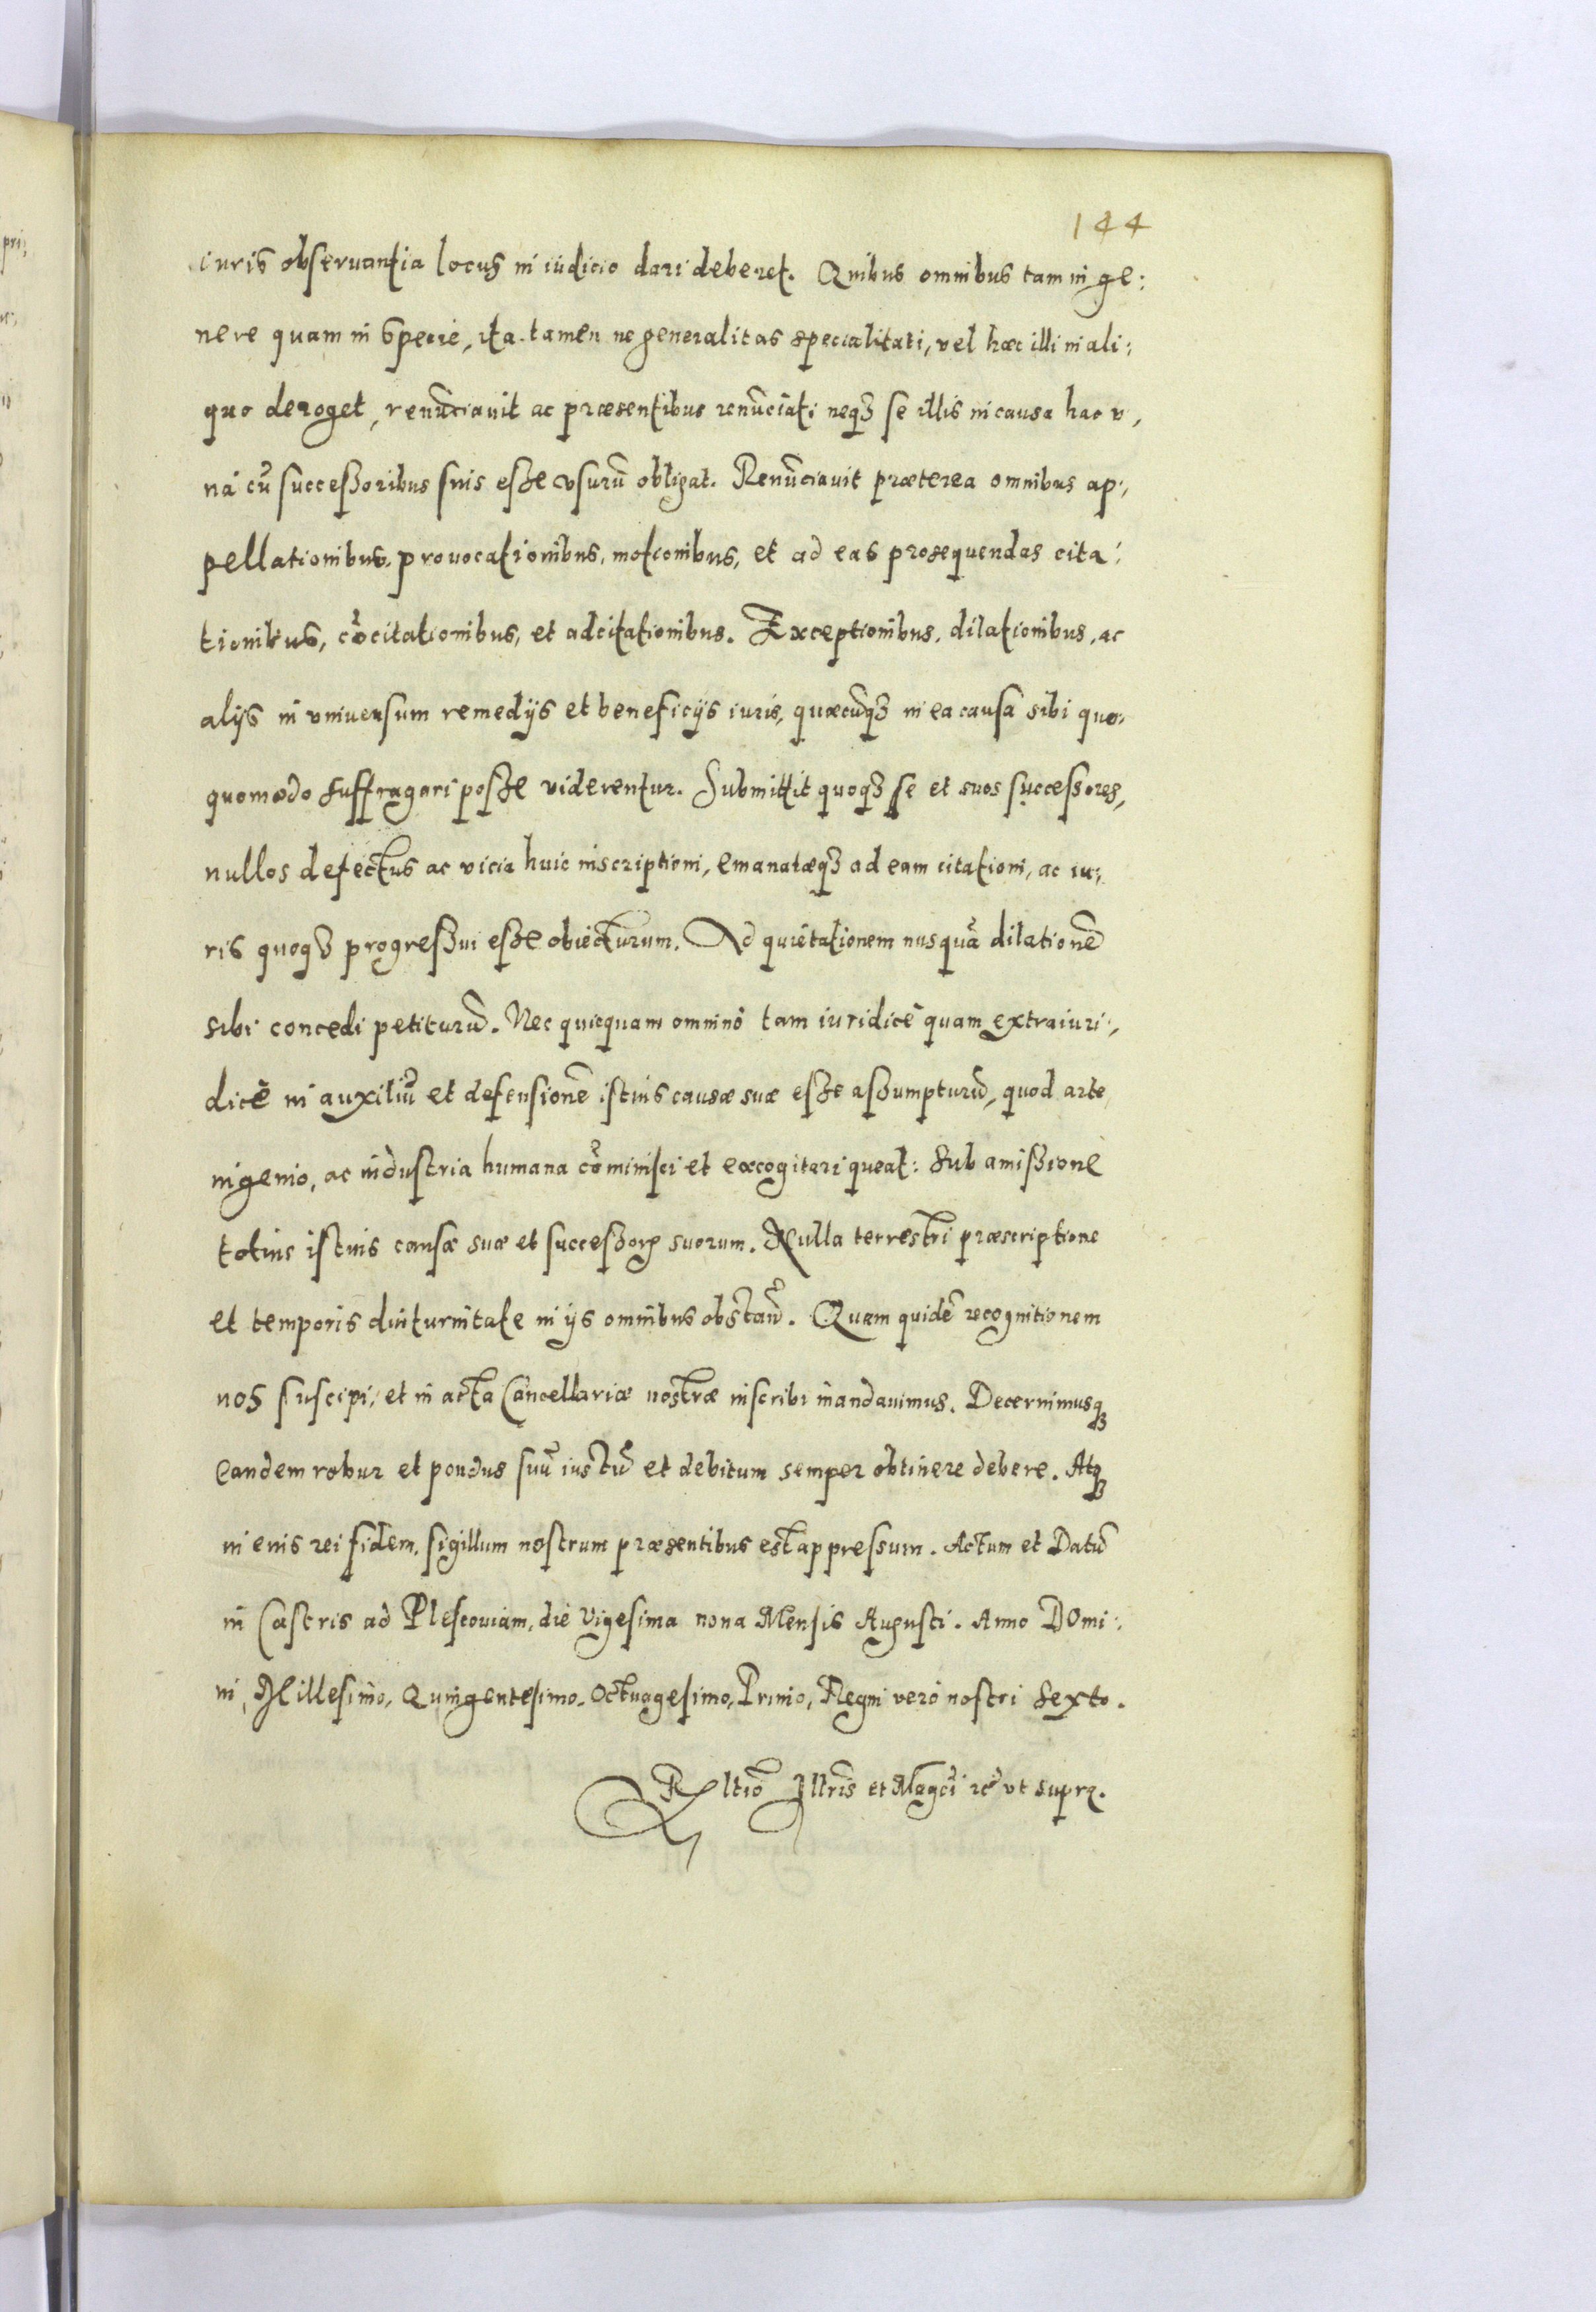 144
iuris obseruantia locus in iudicio dari deberet. Quibus omnibus tam in ge:
nere quam in specie, ita tamen ne generalitas specialitati, vel hæc illi in ali:
quo deroget, renũciauit ac præsentibus renũciati neqꝫ se illis in causa hac v,
nà cũ successoribus suis esse vsurũ obligat. Renũciauit præterea omnibus ap:,
pellationibus, prouocationibus, motionibus, et ad eas prosequendas cita:
tionibus, cõcitationibus, et adcitationibus. Exceptionibus, dilationibus, ac
alijs in vniuersum remedijs et beneficijs iuris, quæcũqꝫ in ea causa sibi quo,
quomodo suffragari posse viderentur. Submittit quoqꝫ se et suos successores,
nullos defectus ac vicia huic inscriptioni, emanatæqꝫ ad eam citationi, ac iu:,
ris quoqꝫ progressui esse obiecturum. Ad quietationem nusquã dilationẽ
sibi concedi petiturũ. Nec quicquam omninò tam iuridicè quam extraiuri:,
dicè in auxiliũ et defensionẽ istius causæ suæ esse assumpturũ, quod arte
ingenio, ac industria humana cõminisci et excogitari queat: sub amissione
totius istius causæ suæ et successorꝝ suorum. Nulla terrestri præscriptione
et temporis diuturnitate in ijs omnibus obstañ. Quam quidẽ recognitionem
nos suscipi, et in acta Cancellariæ nostræ inscribi mandauimus. Decernimusqꝫ
eandem robur et pondus suũ iustũ et debitum semper obtinere debere. Atqꝫ
in euis rei fidem, sigillum nostrum præsentibus est appressum. Actum et Datũ
in Castris ad Plescouiam, die Vigesima nona Mensis Augusti. Anno DOmi:
ni, Millesimo, Quingentesimo, Octuagesimo, Primo, Regni verò nostri sexto.
Rltiõ Illris et Magci ꝛc̃ vt supra.